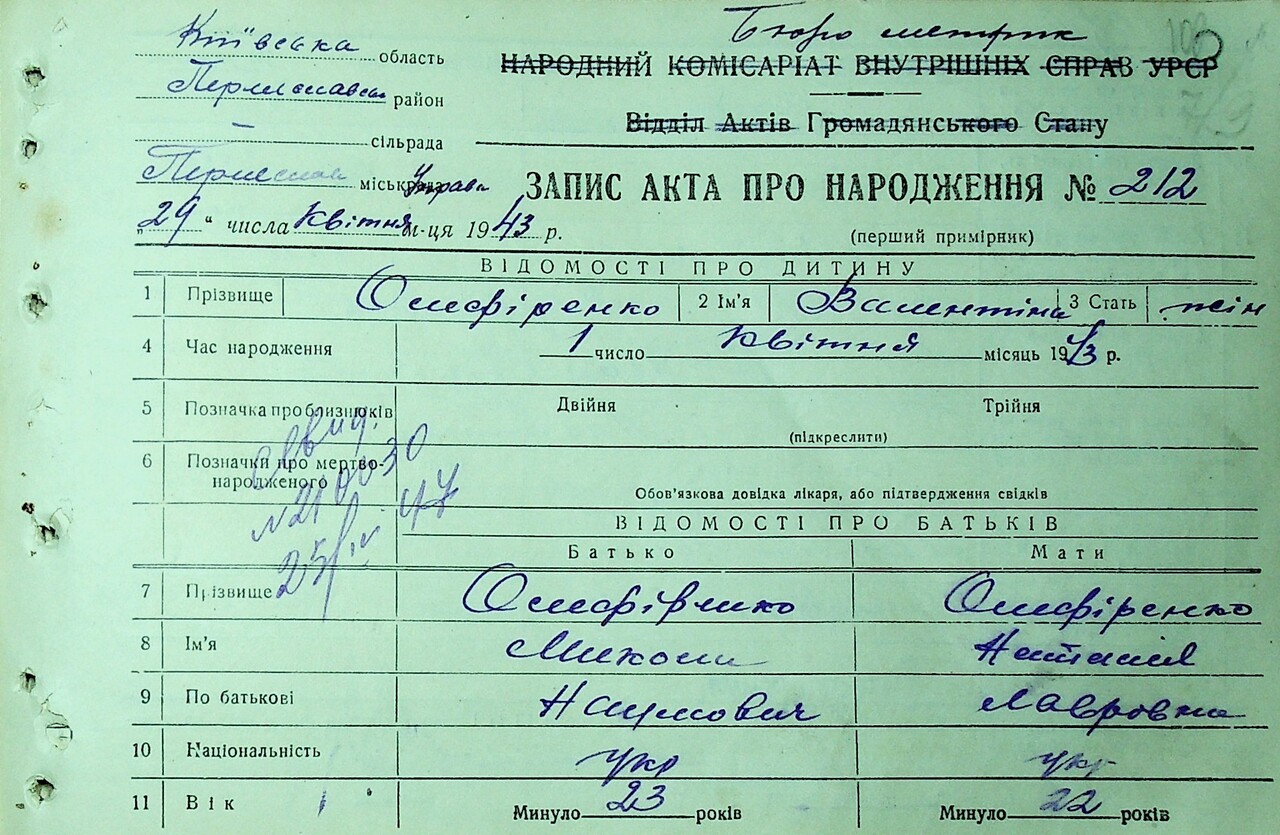 Київська область
Бюро метрик
НАРОДНИЙ КОМІСАРІАТ ВНУТРІШНІХ СПРАВ УРСР
район
Відділ Актів Громадянського Стану
— сільрада
міськрада Управа
ЗАПИС АКТА ПРО НАРОДЖЕННЯ № 212
„29“ числа квітня м-ця 1943 р.
(перший примірник)
ВІДОМОСТІ ПРО ДИТИНУ
1 Прізвище Онефіренко 2 Ім'я Валентіна 3 Стать жін
4 Час народження 1 число квітня місяць 1943 р.
5 Позначка про близнюків Двійня Трійня
(підкреслити)
6 Позначки про мертво-
народженого
Обов'язкова довідка лікаря, або підтвердження свідків
ВІДОМОСТІ ПРО БАТЬКІВ
Батько Мати
7 Прізвище Онефіренко
8 Ім'я Микола Наталія
9 По батькові Наумович Лавровна
10 Національність укр укр
11 Вік Минуло 23 років Минуло 22 років